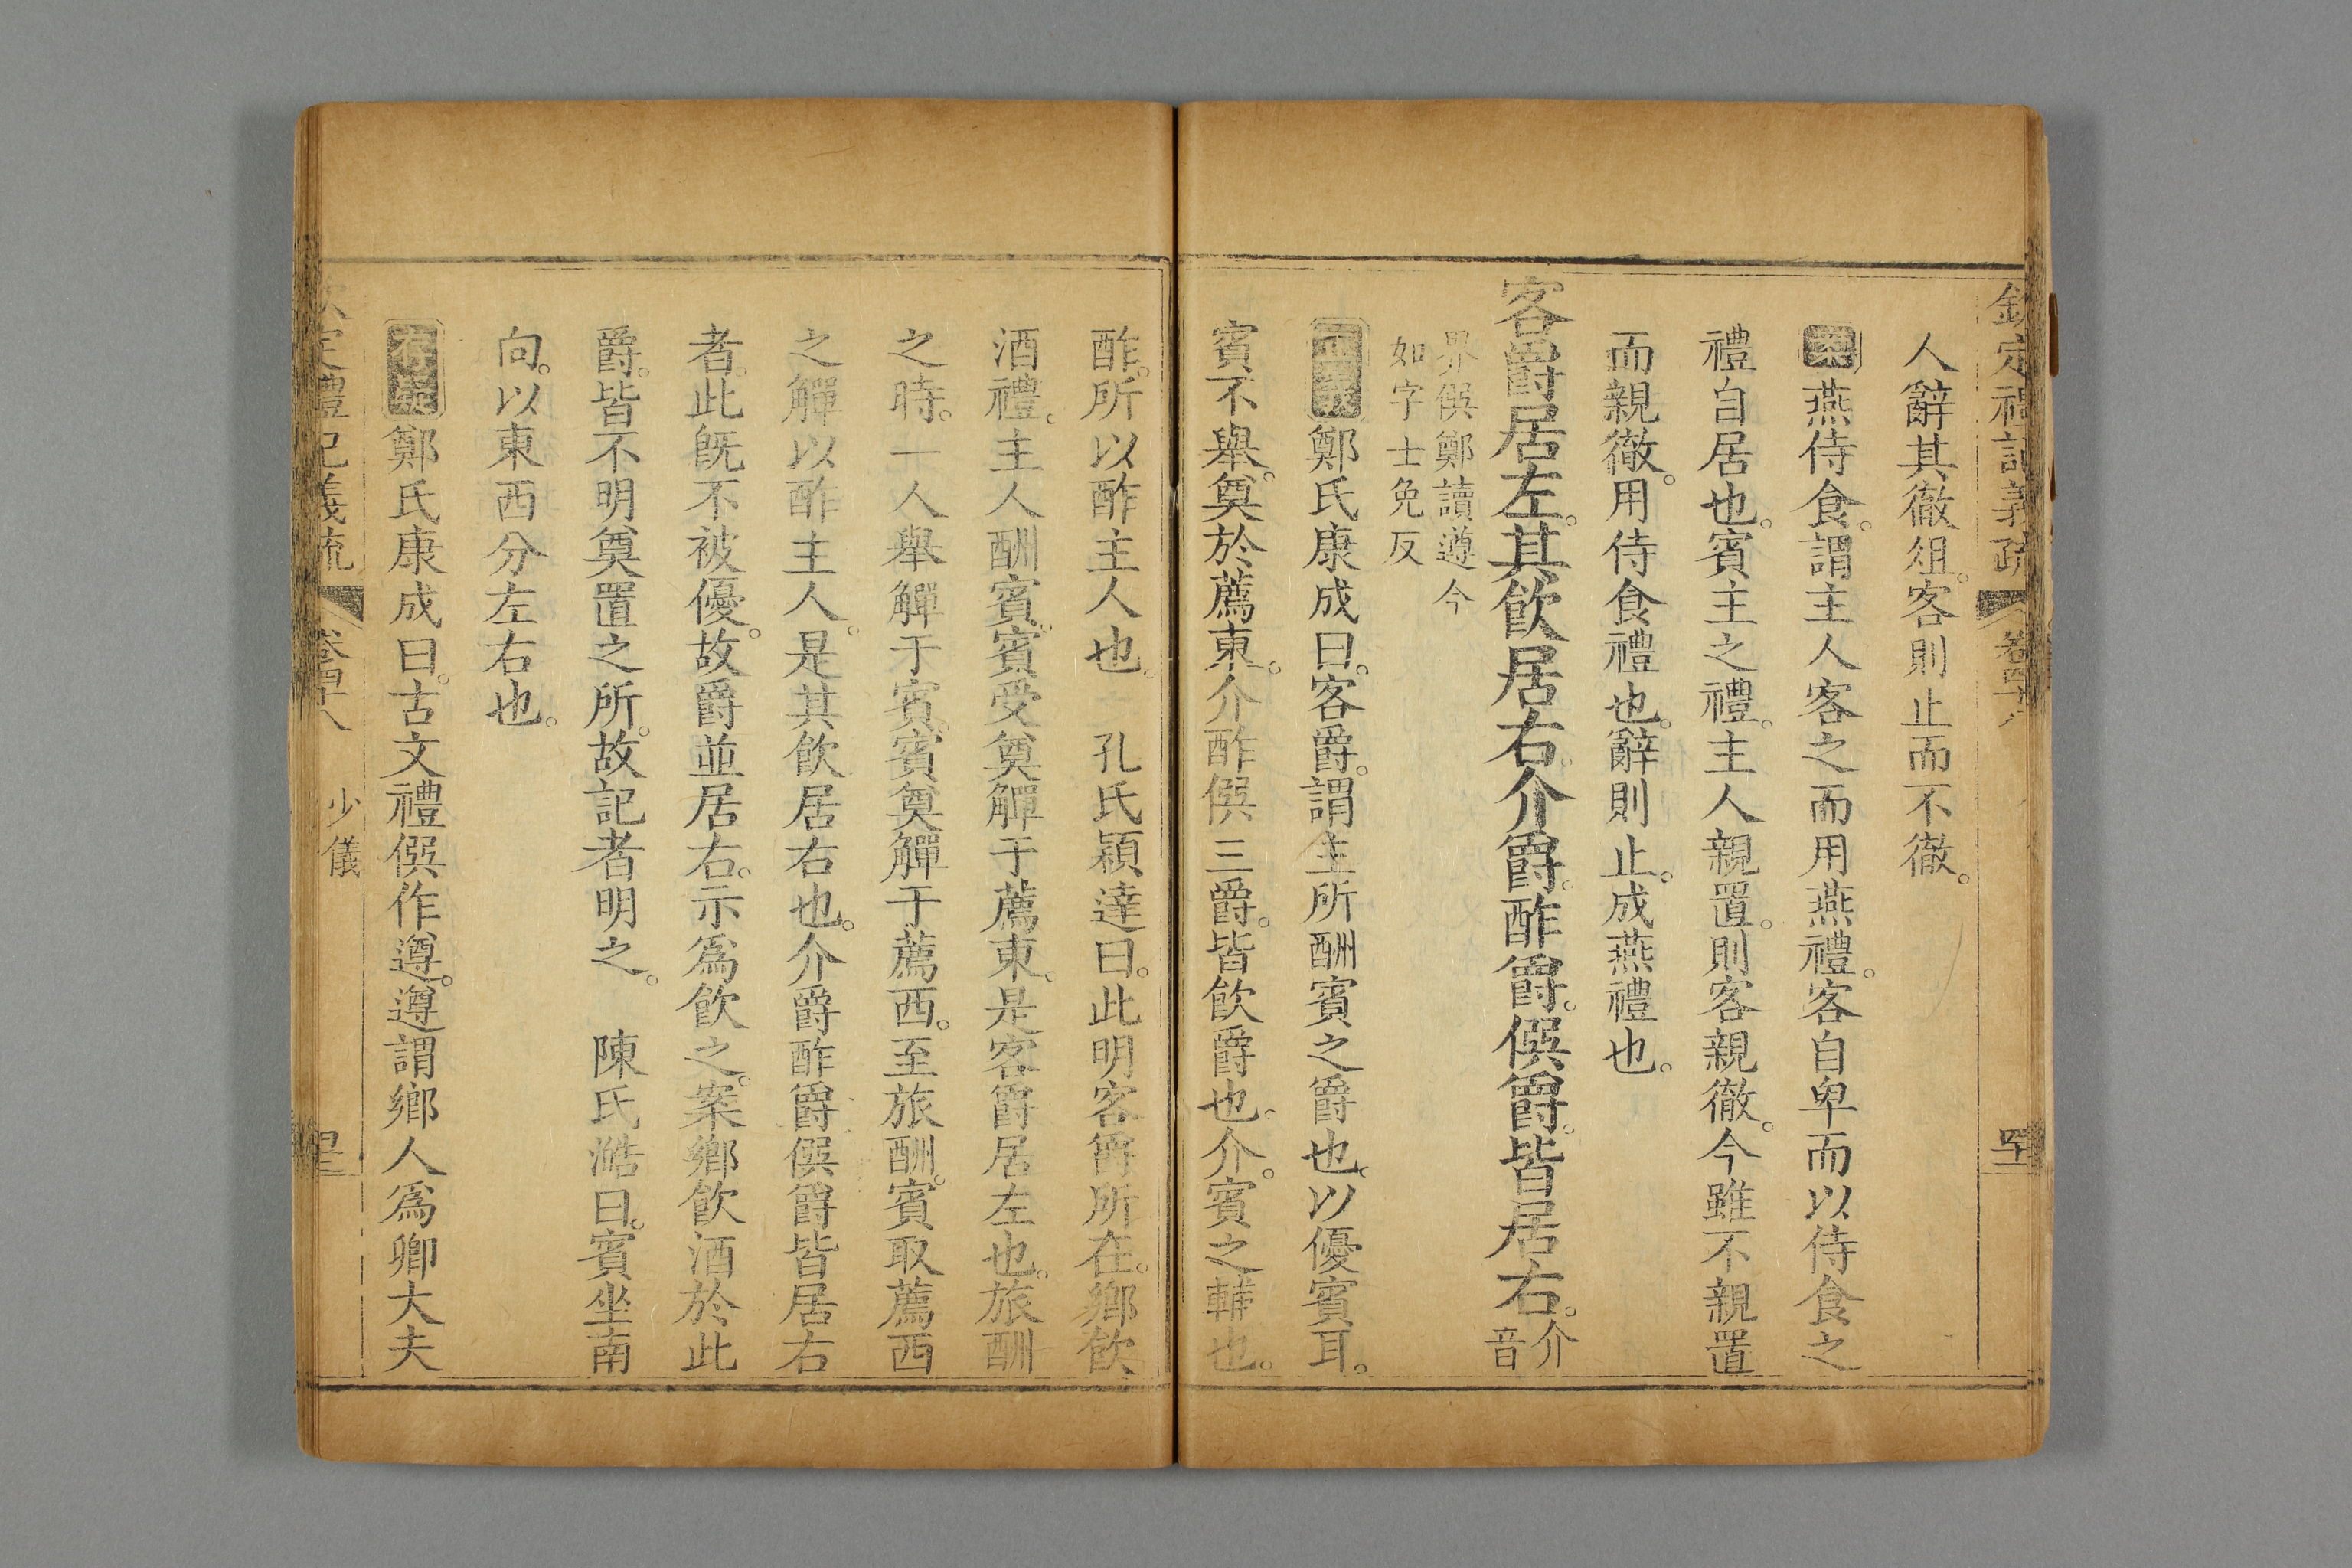 欽定禮記義疏 卷四十八
人辭其徹俎。客則止而不徹。
案燕侍食。謂主人客之而用燕禮。客自卑而以侍食之
禮自居也。賓主之禮。主人親置。則客親徹。今雖不親置
而親徹。用侍食禮也。辭則止。成燕禮也。
客爵居左。其飲居右。介爵。酢爵。僎爵。皆居右。介音
界僎鄭讀遵今
如字士免反
正義鄭氏康成曰。客爵。謂主所酬賓之爵也。以優賓耳。
賓不舉。奠於薦東。介酢僎三爵。皆飲爵也。介。賓之輔也。
酢。所以酢主人也。 孔氏穎達曰。此明客爵所在。鄉飲
酒禮。主人酬賓。賓受奠觶于薦東。是客爵居左也。旅酬
之時。一人舉觶于賓。賓奠觶于薦西。至旅酬。賓取薦西
之觶以酢主人。是其飲居右也。介爵酢爵僎爵皆居右
者。此旣不被優。故爵並居右。示爲飲之。案鄉飲酒於此
爵。皆不明奠置之所。故記者明之。 陳氏澔曰。賓坐南
向。以東西分左右也。
存異鄭氏康成曰。古文禮僎作遵。遵謂鄉人爲卿大夫
欽定禮記義疏 卷四十八 少儀